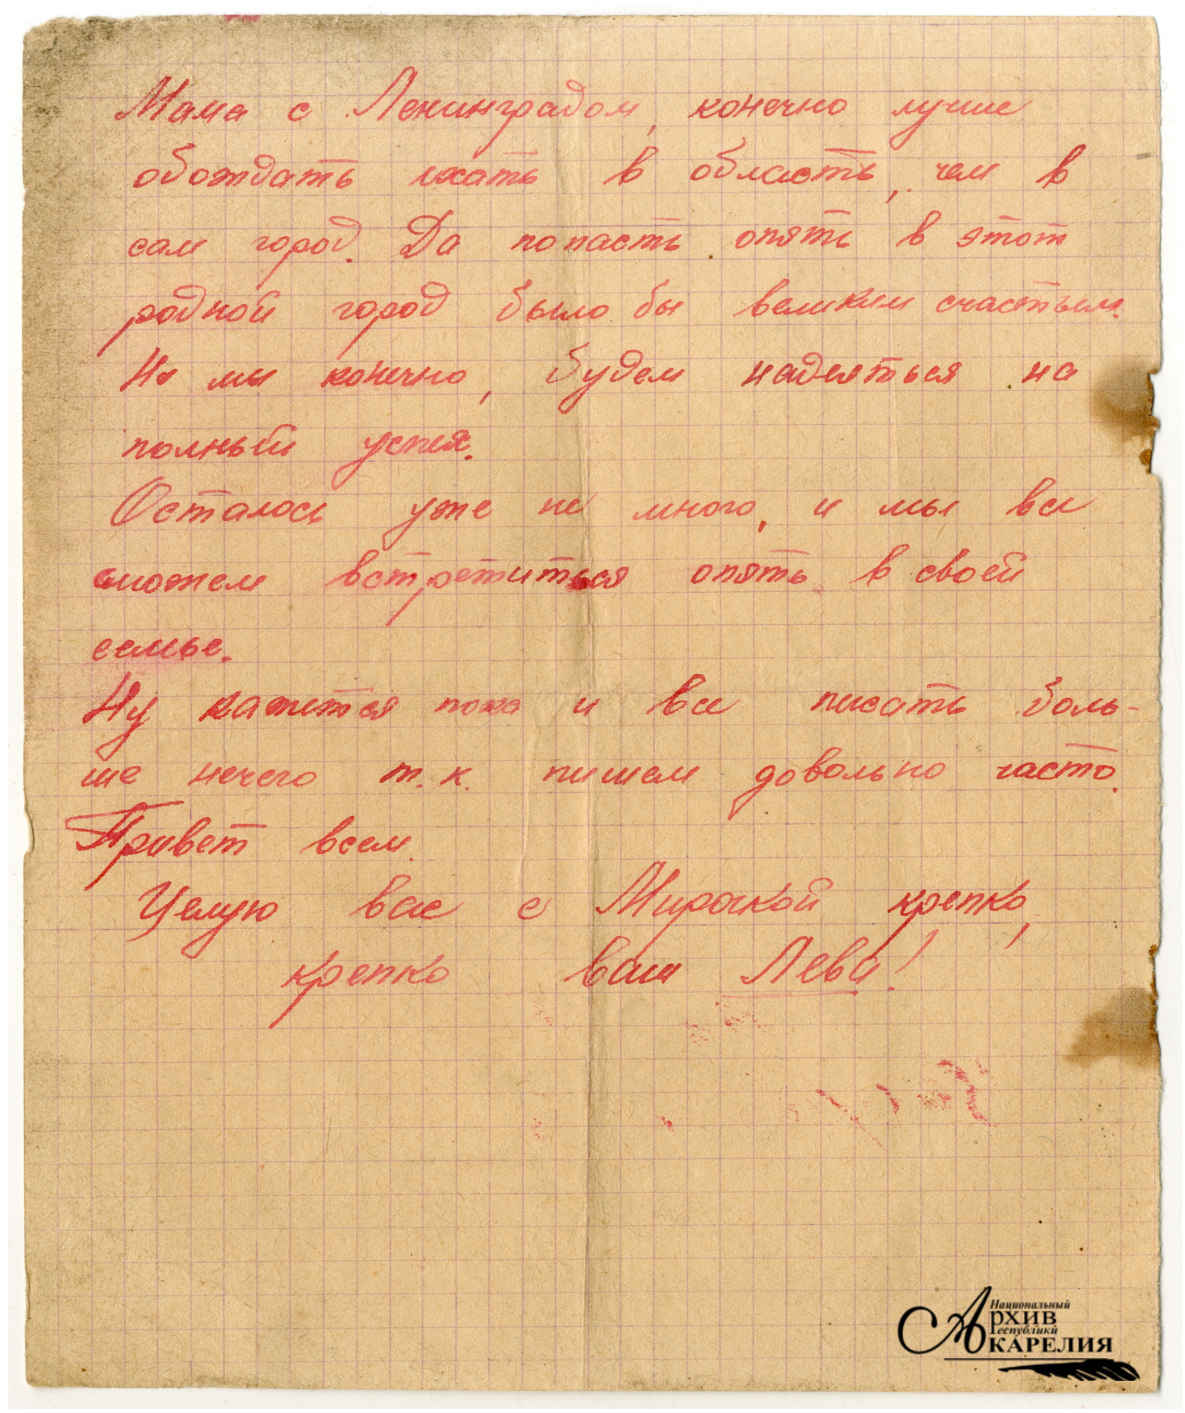 Мама с Ленинградом, конечно лучше
обождать ехать в область, чем в
сам город. Да попасть опять в этот
родной город было бы великим счастьем.
Но мы конечно, будем надеяться на
полный успех.
Осталось уже не много, и мы все
сможем встретиться опять в своей
семье.
Ну кажется пока и все писать боль-
ше нечего т.к. пишем довольно часто.
Привет всем.
Целую вас с Мирочкой крепко,
крепко ваш Лева!
Национальный
Архив
Республики
КАРЕЛИЯ